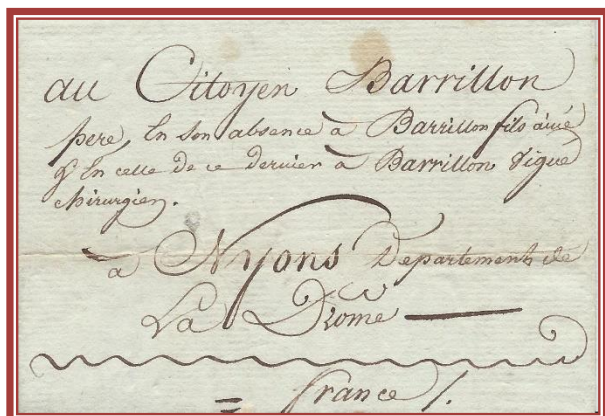 au Citoyen Barrillon
pere, En son absence à Barrillon fils ainé
& En celle de ce dernier à Barrillon Vigué
chirurgien.
à Nyons Departement de
La Drome
= france /.